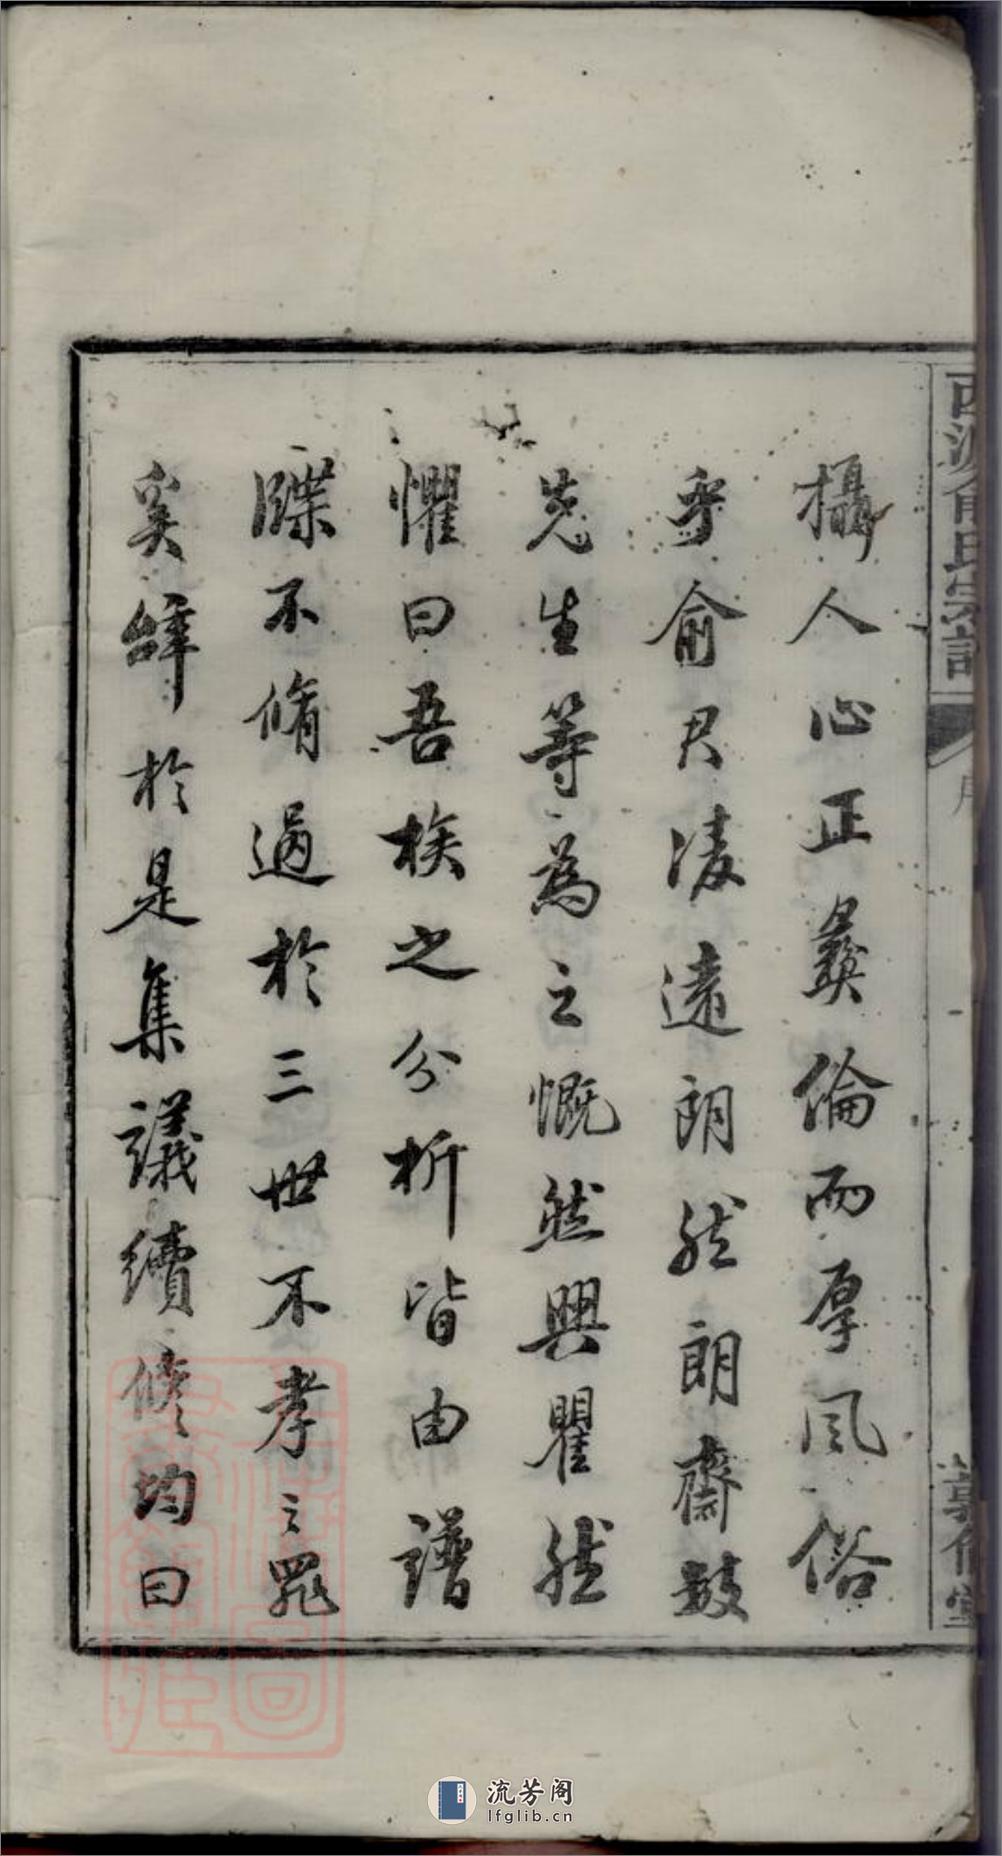 攝人心正彞倫而厚風俗
乎俞君凌遠朗然朗齋數
先生等為之慨然興瞿然
懼曰吾族之分析皆由譜
牒不脩過於三世不孝之罪
奚辭於是集議續修均曰
俞氏宗譜
序
流芳阁
lfglib.cn